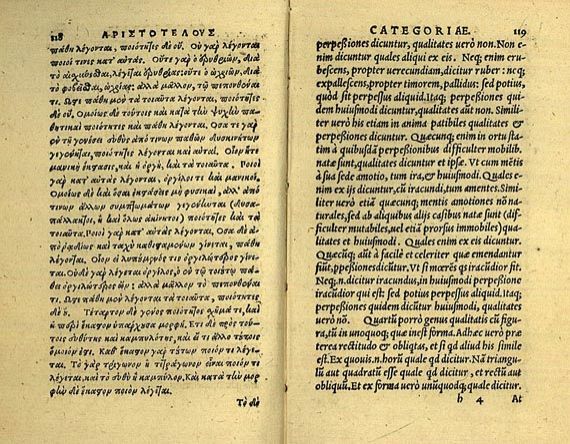 118 ΑΡΙΣΤΟΤΕΛΟΥΣ
πάθη λέγονται, ποιότητες δὲ οὔ. Οὐ γὰρ λέγονται
ποιοί τινες κατ' αὐτάς. Οὔτε γὰρ ὁ ἐρυθριῶν, διὰ
τὸ αἰσχυνθῆναι, λέγεται ἐρυθρίας· οὔτε ὁ ὠχριῶν, διὰ
τὸ φοβεῖσθαι, ὠχρίας· ἀλλὰ μᾶλλον, τι πεπονθέναι
τι. Ὥστε πάθη μὲν τὰ τοιαῦτα λέγονται, ποιότητες
δὲ οὔ. Ὁμοίως δὲ τούτοις καὶ κατὰ τὴν ψυχὴν παθη
τικαὶ ποιότητες καὶ πάθη λέγονται. Ὅσα τε γὰρ
ἐν τῇ γενέσει εὐθὺς ἀπό τινων παθῶν δυσκινήτων
γεγένηται, ποιότητες λέγονται καὶ αὗται. Οἷον ἥ τε
μανικὴ ἔκστασις, καὶ ἡ ὀργὴ, καὶ τὰ τοιαῦτα. Ποιοὶ
γὰρ κατ' αὐτὰς λέγονται, ὀργίλοι τε καὶ μανικοί.
Ὁμοίως δὲ καὶ ὅσαι ἐκστάσεις μὴ φυσικαὶ, ἀλλ' ἀπό
τινων ἄλλων συμπτωμάτων γεγόνασι (δυσα
πάλλακτοι, ἢ καὶ ὅλως ἀκίνητοι) ποιότητες καὶ τὰ
τοιαῦτα. Ποιοὶ γὰρ κατ' αὐτὰς λέγονται. Ὅσα δὲ ἀ
πὸ ῥᾳδίως καὶ ταχὺ καθισταμένων γίνεται, πάθη
λέγονται. Οἷον εἰ λυπούμενός τις ὀργιλώτερος γίνε
ται. Οὐδὲ γὰρ λέγεται ὀργίλος, ὁ ἐν τῷ τοιούτῳ πά
θει ὀργιλώτερος ὤν: ἀλλὰ μᾶλλον τὶ πεπονθέναι.
Ὥστε πάθη μὲν λέγονται τὰ τοιαῦτα, ποιότητες
δὲ οὔ. Τέταρτον δὲ γένος ποιότητος σχῆμά τε, καὶ
ἡ περὶ ἕκαστον ὑπάρχουσα μορφή. Ἔτι δὲ πρὸς τού-
τοις εὐθύτης καὶ καμπυλότης, καὶ εἴ τι ἄλλο τούτοις
ὅμοιόν ἐστι. Καθ' ἕκαστον γὰρ τούτων ποιόν τι λέγε-
ται. Τὸ γὰρ τρίγωνον ἢ τετράγωνον εἶναι ποιόν τι
λέγεται, καὶ τὸ εὐθὺ ἢ καμπύλον. Καὶ κατὰ τὴν μορ
φὴν δὲ ἕκαστον ποιόν λέγεται.
Τὸ δὲ
CATEGORIAE. 119
perpeßiones dicuntur, qualitates uerò non. Non e-
nim dicuntur quales aliqui ex eis. Neq; enim eru-
bescens, propter uerecundiam, dicitur ruber: neq;
expallescens, propter timorem, pallidus: sed potius,
quòd sit perpessus aliquid. Itaq; perpeßiones qui-
dem huiusmodi dicuntur, qualitates aūt non. Simili-
ter uerò his etiam in anima patibiles qualitates &
perpeßiones dicuntur. Quæcunq; enim in ortu sta-
tim à quibusdā perpeßionibus difficulter mobilib.
natæ sunt, qualitates dicuntur et ipsæ. Vt cum mētis
à sua sede amotio, tum ira, & huiusmodi. Quales e-
nim ex ijs dicuntur, cū iracundi, tum amentes. Simi-
liter uerò etiā quæcunq; mentis amotiones nō na-
turales, sed ab aliquibus alijs casibus natæ sunt (dif-
ficulter mutabiles, uel etiā prorsus immobiles) qua-
litates et huiusmodi. Quales enim ex eis dicuntur.
Quæcūq; aūt à facilè et celeriter quæ emendantur
fiūt, ꝑpeßiones dicūtur. Vt si mœrēs qs iracūdior fit.
Neq;.n. dicitur iracundus, in huiusmodi perpeßione
iracūdior qui est: sed potius perpessus aliquid. Itaq;
perpeßiones quidem dicūtur huiusmodi, qualitates
uerò nō. Quartū porrò genus qualitatis cū figu-
ra, tū in unoquoq; quæ inest forma. Adhæc uerò præ
terea rectitudo & obliqtas, et si qd aliud his simile
est. Ex quouis.n. horū quale qd dicitur. Nā triangu-
lū aut quadratū esse quale qd dicitur, et rectū aut
obliquū. Et ex forma uerò unūquodq; quale dicitur.
h 4 At